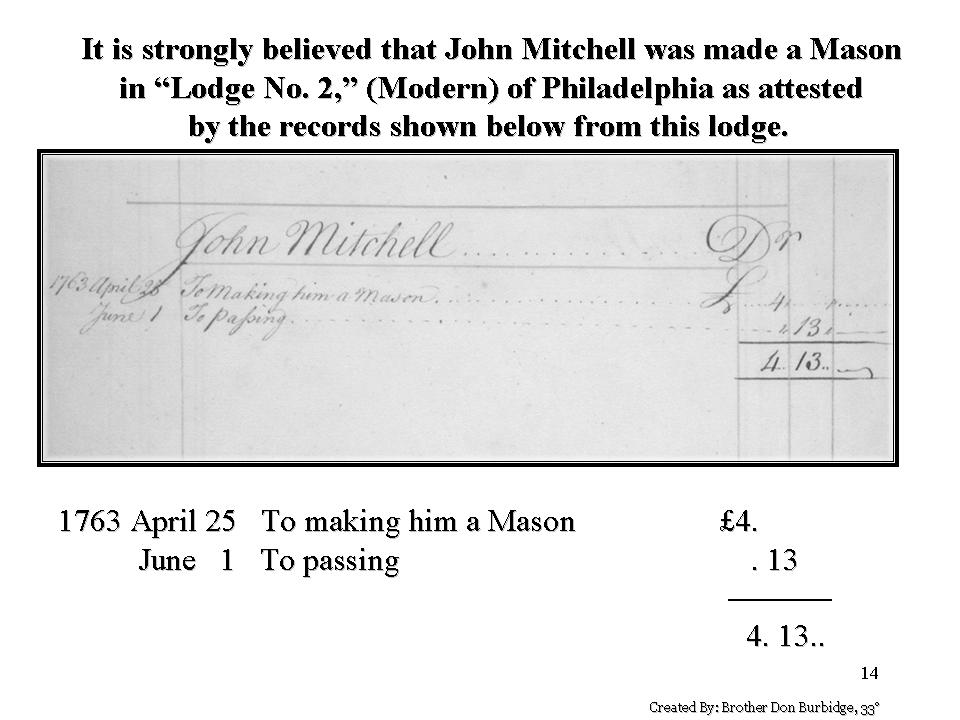 It is strongly believed that John Mitchell was made a Mason
in “Lodge No. 2,” (Modern) of Philadelphia as attested
by the records shown below from this lodge.
John Mitchell .................... Dr
1763 April 25 To Making him a Mason .................... £ 4 .. ..
June 1 To passing .................... .. 13 ..
4 13 ..
1763 April 25 To making him a Mason £4.
June 1 To passing . 13
4. 13..
14
Created By: Brother Don Burbidge, 33°